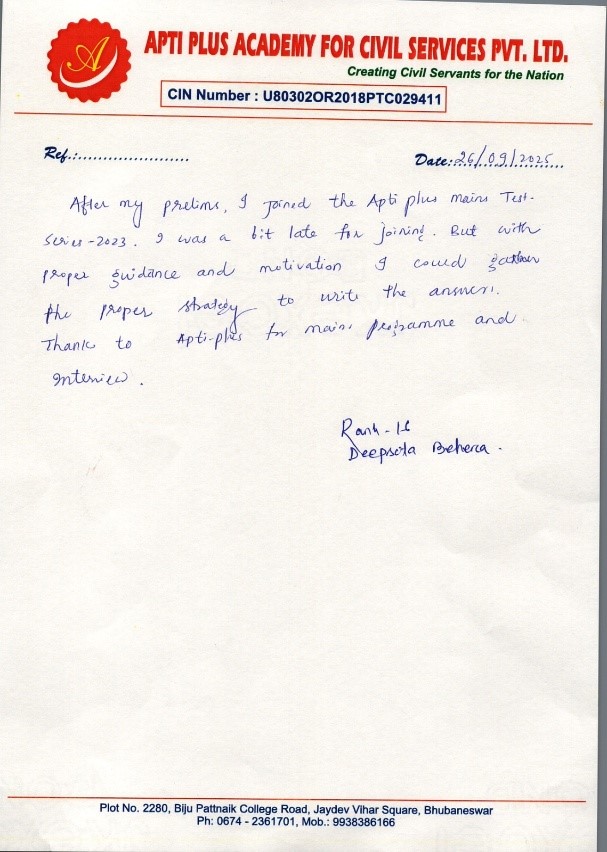 A
APTI PLUS ACADEMY FOR CIVIL SERVICES PVT. LTD.
Creating Civil Servants for the Nation
CIN Number : U80302OR2018PTC029411
Ref.:...................... Date: 26/09/2025
After my prelims, I joined the Apti plus mains Test-
Series-2023. I was a bit late for joining. But with
proper guidance and motivation I could gather
the proper strategy to write the answers.
Thank to Apti-plus for mains programme and
Interview.
Rank - 16
Behera.
Plot No. 2280, Biju Pattnaik College Road, Jaydev Vihar Square, Bhubaneswar
Ph: 0674 - 2361701, Mob.: 9938386166